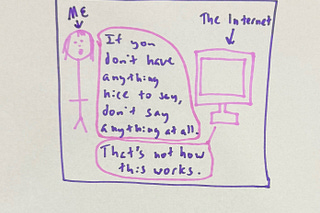 ME
The Internet
If you
don't have
anything
nice to say,
don't say
anything at all.
That's not how
this works.